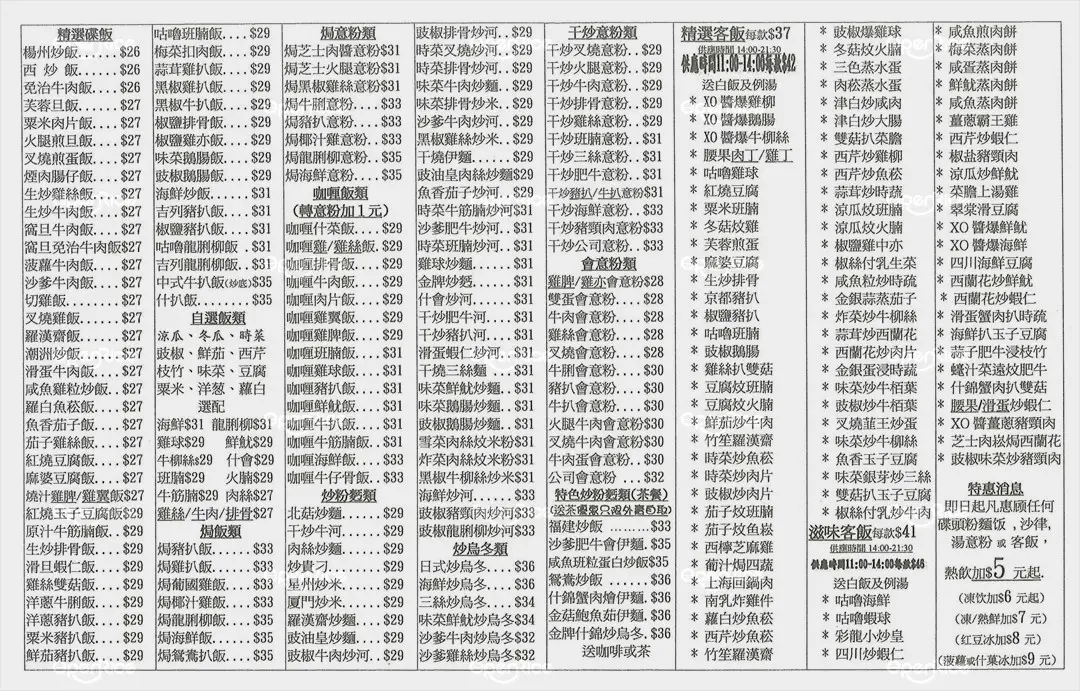 精選碟飯
楊州炒飯....$26
西炒飯....$26
免治牛肉飯..$26
芙蓉旦飯....$27
粟米肉片飯..$27
火腿煎旦飯..$27
叉燒煎蛋飯..$27
煙肉腸仔飯..$27
生炒雞絲飯..$27
生炒牛肉飯..$27
窩旦牛肉飯..$27
窩旦免治牛肉飯$27
菠蘿牛肉飯..$27
沙爹牛肉飯..$27
切雞飯......$27
叉燒雞飯....$27
羅漢齋飯....$27
潮洲炒飯....$27
滑蛋牛肉飯..$27
咸魚雞粒炒飯..$27
羅白魚菘飯..$27
魚香茄子飯..$27
茄子雞絲飯..$27
紅燒豆腐飯..$27
麻婆豆腐飯..$27
燒汁雞脾/雞翼飯$27
紅燒玉子豆腐飯$29
原汁牛筋腩飯..$29
生炒排骨飯..$29
滑旦蝦仁飯..$29
雞絲雙菇飯..$29
洋蔥牛脷飯..$29
洋蔥豬扒飯..$29
粟米豬扒飯..$29
鮮茄豬扒飯..$29
咕嚕班腩飯....$29
梅菜扣肉飯....$29
蒜茸雞扒飯....$29
黑椒雞扒飯....$29
黑椒牛扒飯....$29
椒鹽排骨飯....$29
椒鹽雞亦飯....$29
味菜鵝腸飯....$29
豉椒鵝腸飯....$29
海鮮炒飯......$31
吉列豬扒飯....$31
椒鹽豬扒飯....$31
咕嚕龍脷柳飯..$31
吉列龍脷柳飯..$31
中式牛扒飯(炒底)$35
什扒飯........$35
自選飯類
涼瓜、冬瓜、時菜
豉椒、鮮茄、西芹
枝竹、味菜、豆腐
粟米、洋葱、蘿白
選配
海鮮$31 龍脷柳$31
雞球$29 鮮魷$29
牛柳絲$29 什會$29
班腩$29 火腩$29
牛筋腩$29 肉絲$27
雞絲/牛肉/排骨$27
焗飯類
焗豬扒飯....$33
焗雞扒飯....$33
焗葡國雞飯..$33
焗椰汁雞飯..$33
焗肉醬飯....$33
焗海鮮飯....$35
焗鴛鴦扒飯..$35
焗意粉類
焗芝士肉醬意粉$31
焗芝士火腿意粉$31
焗黑椒雞絲意粉$31
焗牛脷意粉....$33
焗豬扒意粉....$33
焗椰汁雞意粉..$33
焗龍脷柳意粉..$35
焗海鮮意粉....$35
咖喱飯類
(轉意粉加1元)
咖喱什菜飯....$29
咖喱雞/雞絲飯.$29
咖喱排骨飯....$29
咖喱牛肉飯....$29
咖喱肉片飯....$29
咖喱雞翼飯....$29
咖喱雞脾飯....$29
咖喱班腩飯....$31
咖喱豬扒飯....$31
咖喱鮮魷飯....$31
咖喱牛扒飯....$31
咖喱牛筋腩飯..$31
咖喱海鮮飯....$33
咖喱牛仔骨飯..$33
炒粉麪類
北菇炒麵......$29
干炒牛河......$29
肉絲炒麵......$29
炒貴刁........$29
星州炒米......$29
厦門炒米......$29
羅漢齋炒麵....$29
豉油皇炒麵....$29
豉椒牛肉炒河..$29
豉椒排骨炒河..$29
時菜叉燒炒河..$29
時菜排骨炒河..$29
味菜牛肉炒麵..$29
味菜排骨炒米..$29
沙爹牛肉炒河..$29
黑椒雞絲炒米..$29
干燒伊麵......$29
豉油皇肉絲炒麵$29
魚香茄子炒河..$29
時菜牛筋腩炒河$31
沙爹肥牛炒河..$31
時菜班腩炒河..$31
雞球炒麵......$31
金牌炒麪......$31
什會炒河......$31
干炒肥牛河....$31
干炒豬扒河....$31
滑蛋蝦仁炒河..$31
干燒三絲麵....$31
味菜鮮魷炒麵..$31
味菜鵝腸炒麵..$31
豉椒鵝腸炒麵..$31
雪菜肉絲炆米粉$31
炸菜肉絲炆米粉$31
黑椒牛柳絲炒米$31
海鮮炒河......$33
豉椒豬頸肉炒河$33
豉椒龍脷柳炒河$33
炒烏冬類
日式炒烏冬....$36
海鮮炒烏冬....$36
三絲炒烏冬....$34
味菜鮮魷炒烏冬$34
沙爹牛肉炒烏冬$32
沙爹雞絲炒烏冬$32
干炒意粉類
干炒叉燒意粉..$29
干炒火腿意粉..$29
干炒牛肉意粉..$29
干炒排骨意粉..$29
干炒雞絲意粉..$29
干炒班腩意粉..$31
干炒三絲意粉..$31
干炒肥牛意粉..$31
干炒豬扒/牛扒意粉$31
干炒海鮮意粉..$33
干炒豬頸肉意粉$33
干炒公司意粉..$33
會意粉類
雞脾/雞亦會意粉$28
雙蛋會意粉..$28
牛肉會意粉..$28
雞絲會意粉..$28
叉燒會意粉..$28
牛脷會意粉..$30
豬扒會意粉..$30
牛扒會意粉..$30
火腿牛肉會意粉.$30
叉燒牛肉會意粉.$30
牛肉蛋會意粉..$30
公司會意粉....$32
特色炒粉麪類(茶餐)
福建炒飯..........$33
沙爹肥牛會伊麵.$35
咸魚班粒蛋白炒飯$35
鴛鴦炒飯......$36
什錦蟹肉燴伊麵.$36
金菇鮑魚茹伊麵.$36
金牌什錦炒烏冬.$36
送咖啡或茶
精選客飯每款$37
供應時間 14:00-21:30
供應時間11:00-14:00每款$42
送白飯及例湯
* XO 醬爆雞柳
* XO 醬爆鵝腸
* XO 醬爆牛柳絲
* 腰果肉丁/雞丁
* 咕嚕雞球
* 紅燒豆腐
* 粟米班腩
* 冬菇炆雞
* 芙蓉煎蛋
* 麻婆豆腐
* 生炒排骨
* 京都豬扒
* 椒鹽豬扒
* 咕嚕班腩
* 豉椒鵝腸
* 雞絲扒雙菇
* 豆腐炆班腩
* 豆腐炆火腩
* 鮮茄炒牛肉
* 竹笙羅漢齋
* 時菜炒魚菘
* 時菜炒肉片
* 豉椒炒肉片
* 茄子炆班腩
* 茄子炆魚崧
* 西檸芝麻雞
* 葡汁焗四蔬
* 上海回鍋肉
* 南乳炸雞件
* 蘿白炒魚菘
* 西芹炒魚崧
* 竹笙羅漢齋
* 豉椒爆雞球
* 冬菇炆火腩
* 三色蒸水蛋
* 肉崧蒸水蛋
* 津白炒咸肉
* 津白炒大腸
* 雙菇扒菜膽
* 西芹炒雞柳
* 西芹炒魚菘
* 蒜茸炒時蔬
* 涼瓜炆班腩
* 涼瓜炆火腩
* 椒鹽雞中亦
* 椒絲付乳生菜
* 咸魚粒炒時疏
* 金銀蒜蒸茄子
* 炸菜炒牛柳絲
* 蒜茸炒西蘭花
* 西蘭花炒肉片
* 金銀蛋浸時蔬
* 味菜炒牛栢葉
* 豉椒炒牛栢葉
* 叉燒韮王炒蛋
* 味菜炒牛柳絲
* 魚香玉子豆腐
* 味菜銀芽炒三絲
* 雙菇扒玉子豆腐
* 椒絲付乳炒牛肉
滋味客飯每款$41
供應時間 14:00-21:30
供應時間11:00-14:00每款$46
送白飯及例湯
* 咕嚕海鮮
* 咕嚕蝦球
* 彩龍小炒皇
* 四川炒蝦仁
* 咸魚煎肉餅
* 梅菜蒸肉餅
* 咸蛋蒸肉餅
* 鮮魷蒸肉餅
* 咸魚蒸肉餅
* 薑蔥霸王雞
* 西芹炒蝦仁
* 椒盐豬頸肉
* 涼瓜炒鮮魷
* 菜膽上湯雞
* 翠棠滑豆腐
* XO 醬爆鮮魷
* XO 醬爆海鮮
* 四川海鮮豆腐
* 西蘭花炒鮮魷
* 西蘭花炒蝦仁
* 滑蛋蟹肉扒時疏
* 海鮮扒玉子豆腐
* 蒜子肥牛浸枝竹
* 蠔汁菜遠炆肥牛
* 什錦蟹肉扒雙菇
* 腰果/滑蛋炒蝦仁
* XO 醬薑蔥豬頸肉
* 芝士肉崧焗西蘭花
* 豉椒味菜炒豬頸肉
特惠消息
即日起凡惠顧任何
碟頭粉麵饭，沙律,
湯意粉 或 客飯，
熱飲加$5 元起.
(凍饮加$6 元起)
(凍/熱鮮加$7 元)
(紅豆冰加$8 元)
(菠蘿或什菓冰加$9 元)